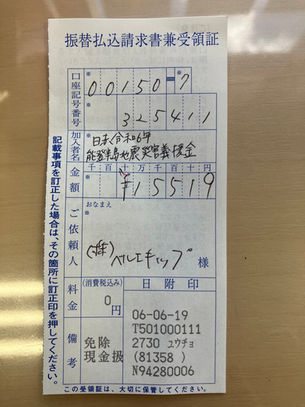 振替払込請求書兼受領証
口座記号番号
00150-7
325411
加入者名
日赤令和6年
能登半島地震災害義援金
金額
千百十万千百十円
¥15519
ご依頼人
おなまえ
(株)ベルエキップ
様
料金
(消費税込み)
0円
備考
免除
現金扱
日附印
06-06-19
T501000111
2730 ユウチョ
(81358)
N94280006
記載事項を訂正した場合は、その箇所に訂正印を押してください。
この受領証は、大切に保管してください。